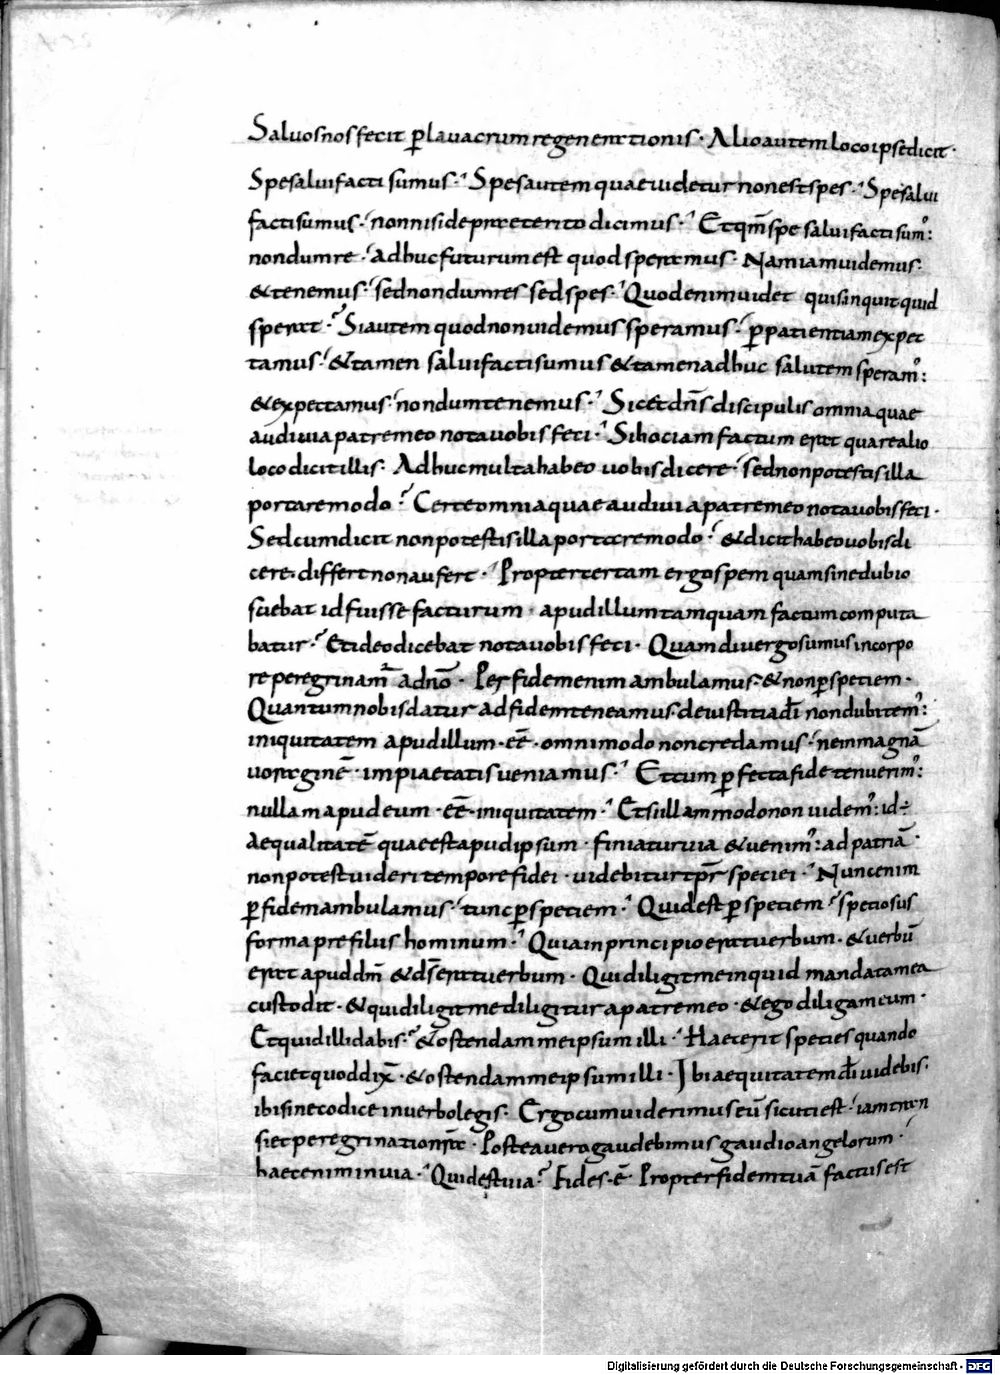 Saluos nos fecit p̄ lauacrum regenerationis · Alio autem loco ipse dicit ·
Spe salui facti sumus · Spes autem quae uidetur non est spes · Spe salui
facti sumus · non nisi de praeterito dicimus · Et qm̄ spe salui facti sum᾽:
nondum re · adhuc futurum est quod speramus · Nam iam uidemus ·
& tenemus · sed nondum res sed spes · Quod enim uidet quis inquit quid
sperat · Si autem quod non uidemus speramus · p̄ patientiam expec
tamus · & tamen salui facti sumus & tamen adhuc salutem speram᾽:
& expectamus · nondum tenemus · Sic et dn̄s discipulis omnia quae
audiui a patre meo nota uobis feci · Si hoc iam factum erat quare alio
loco dicit illis · Adhuc multa habeo uobis dicere · sed non potestis illa
portare modo · Certe omnia quae audiui a patre meo nota uobis feci ·
Sed cum dicit non potestis illa portare modo · & dicit habeo uobis di
cere · differt non aufert · Propter certam ergo spem quam sine dubio
sciebat id fuisse facturum · apud illum tamquam factum computa
batur · Et ideo dicebat nota uobis feci · Quamdiu ergo sumus in corpo
re peregrinam̄ a dn̄o · Per fidem enim ambulamus · & non p̄ speciem ·
Quantum nobis datur ad fidem teneamus · de iustitia dī non dubitem᾽:
iniquitatem apud illum · eē · omnimodo non credamus · ne in magnā
uoraginē · impiaetatis ueniamus · Et cum p̄fecta fide tenuerim᾽:
nullam apud eum · eē · iniquitatem · Et si illam modo non uidem᾽: id ÷
aequalitatē quae est apud ipsum · finiatur uia & uenim᾽: ad patriā ·
non potest uideri tempore fidei · uidebitur tp̄r speciei · Nunc enim
p̄ fidem ambulamus · tunc p̄ speciem · Quid est p̄ speciem · speciosus
forma prę filiis hominum · Quia in principio erat uerbum · & uerbū
erat apud dm̄ & ds̄ erat uerbum · Qui diligit me inquid mandata mea
custodit · & qui diligit me diligitur a patre meo · & ego diligam eum ·
Et quid illi dabis · & ostendam me ipsum illi · Haec erit species quando
faciet quod dix̄ · & ostendam me ipsum illi · Ibi aequitatem dī uidebis ·
ibi sine codice in uerbo legis · Ergo cum uiderimus eū sicuti est · iam
siet peregrinatio nr̄a · Postea uero gaudebimus gaudio angelorum ·
haec enim in uia · Quid est uia · Fides · ē · Propter fidem tuā factus est
Digitalisierung gefördert durch die Deutsche Forschungsgemeinschaft - DFG